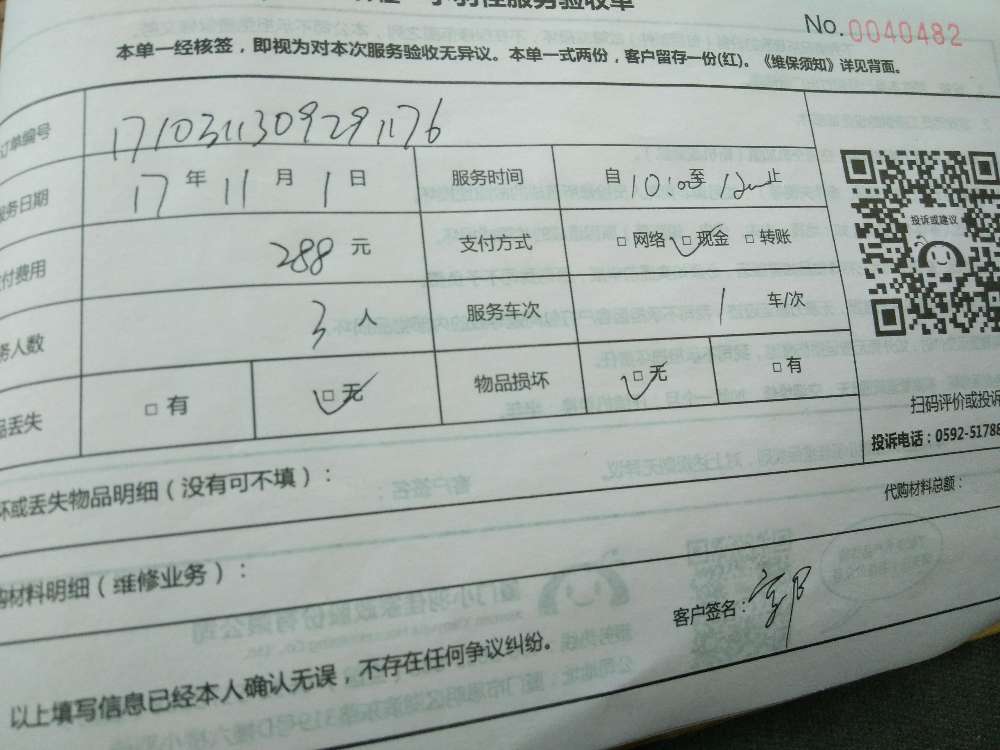 小羽佳服务验收单
No.0040482
本单一经核签，即视为对本次服务验收无异议。本单一式两份，客户留存一份(红)。《维保须知》详见背面。
订单编号 1710311309291176
服务日期 17 年 11 月 1 日 服务时间 自 10:00 至 12:00 止
付费用 288 元 支付方式 □ 网络 □ 现金 □ 转账
务人数 3 人 服务车次 1 车/次
品丢失 □ 有 □ 无 物品损坏 □ 无 □ 有
投诉或建议
扫码评价或投诉
投诉电话：0592-51788
坏或丢失物品明细（没有可不填）：
代购材料总额：
购材料明细（维修业务）：
客户签名：
以上填写信息已经本人确认无误，不存在任何争议纠纷。